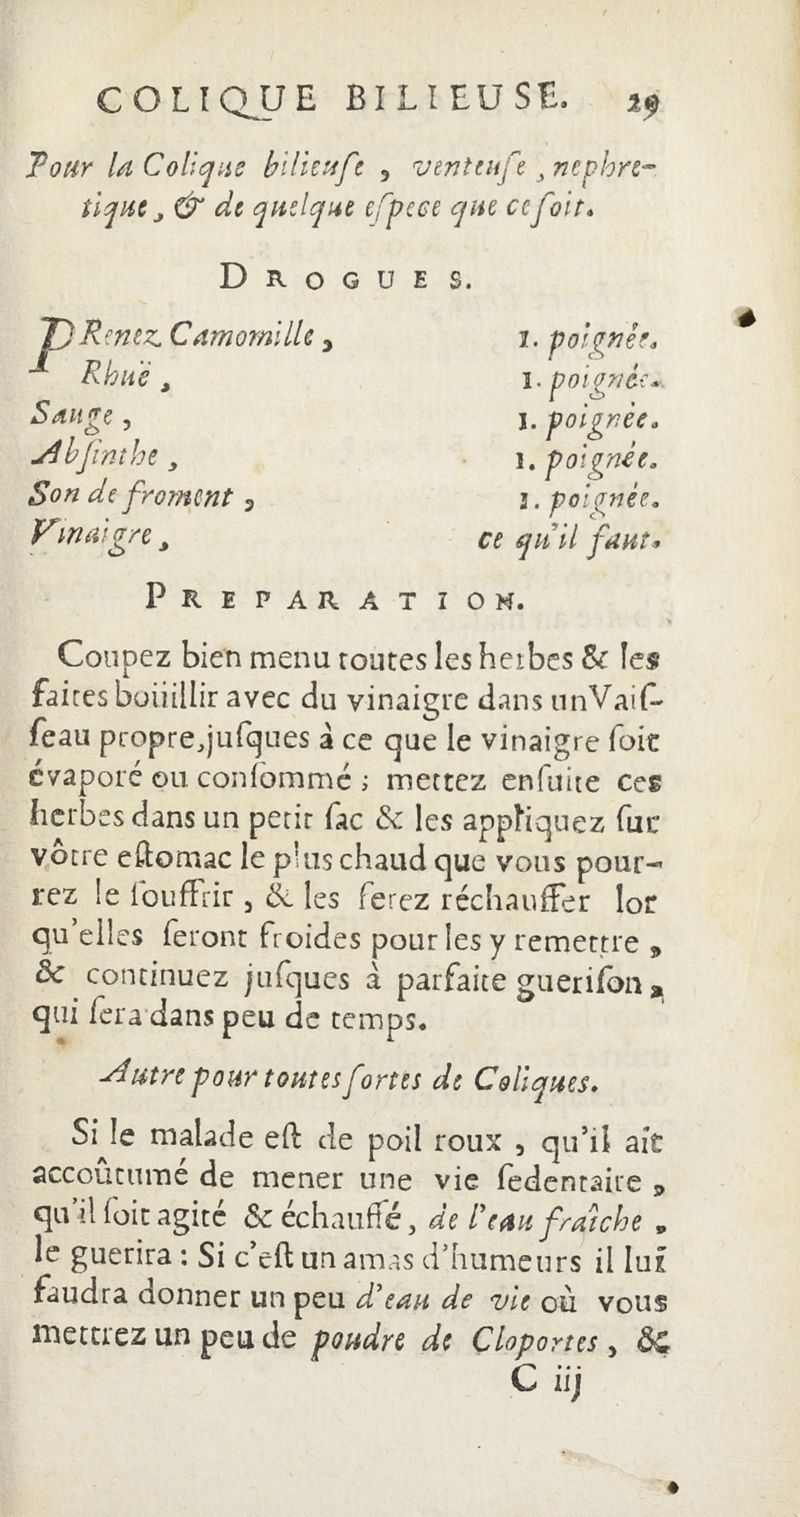 COLIQUE BILIEUSE. 29
Pour la Colique bilieuſe , venteuſe , nephre-
tique , & de quelque eſpece que ce ſoit.
DROGUES.
PRenez Camomille , 1. poignée.
Rhuë , 1. poignée.
Sauge , 1. poignée.
Abſinthe , 1. poignée.
Son de froment , 1. poignée.
Vinaigre , ce qu'il faut.
PREPARATION.
Coupez bien menu toutes les herbes & les
faites boüillir avec du vinaigre dans un Vaiſ-
ſeau propre, juſques à ce que le vinaigre ſoit
évaporé ou conſommé ; mettez enſuite ces
herbes dans un petit ſac & les appliquez ſur
vôtre eſtomac le plus chaud que vous pour-
rez le ſouffrir , & les ferez réchauffer lor
qu'elles ſeront froides pour les y remettre ,
& continuez juſques à parfaite gueriſon ,
qui ſera dans peu de temps.
Autre pour toutes ſortes de Coliques.
Si le malade eſt de poil roux , qu'il aît
accoûtumé de mener une vie ſedentaire ,
qu'il ſoit agité & échauffé , de l'eau fraîche ,
le guerira : Si c'eſt un amas d'humeurs il lui
faudra donner un peu d'eau de vie où vous
mettrez un peu de poudre de Cloportes , &
C iij